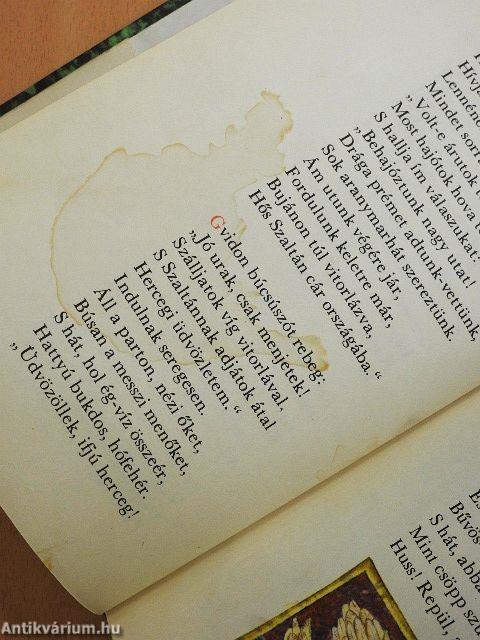 Hívj
Lennéne
Mindet sor
„Volt-e árutok
Most hajótok hova
S hallja ím válaszukat:
„Behajóztunk nagy utat!
Drága prémet adtunk-vettünk,
Sok aranymarhát szereztünk.
Ám utunk végére jár,
Fordulunk keletre már,
Bujánon túl vitorlázva,
Hős Szaltán cár országába.“
Gvidon búcsúszót rebeg:
„Jó urak, csak menjetek!
Szálljatok víg vitorlával,
S Szaltánnak adjátok által
Hercegi üdvözletem.“
Indulnak seregesen.
Áll a parton, nézi őket,
Búsan a messzi menőket,
S hát, hol ég-víz összeér,
Hattyú bukdos, hófehér.
„Üdvözöllek, ifjú herceg!
Bűvös
S hát, abba
Mint csöpp sz
Huss! Repül,
Antikvárium.hu